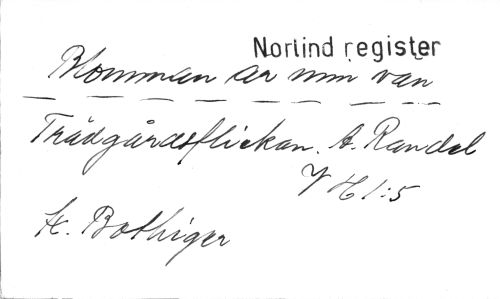 Norlind register
Blomman är min vän
Trädgårdsflickan. A. Randel
H 1:5
K. Böttiger